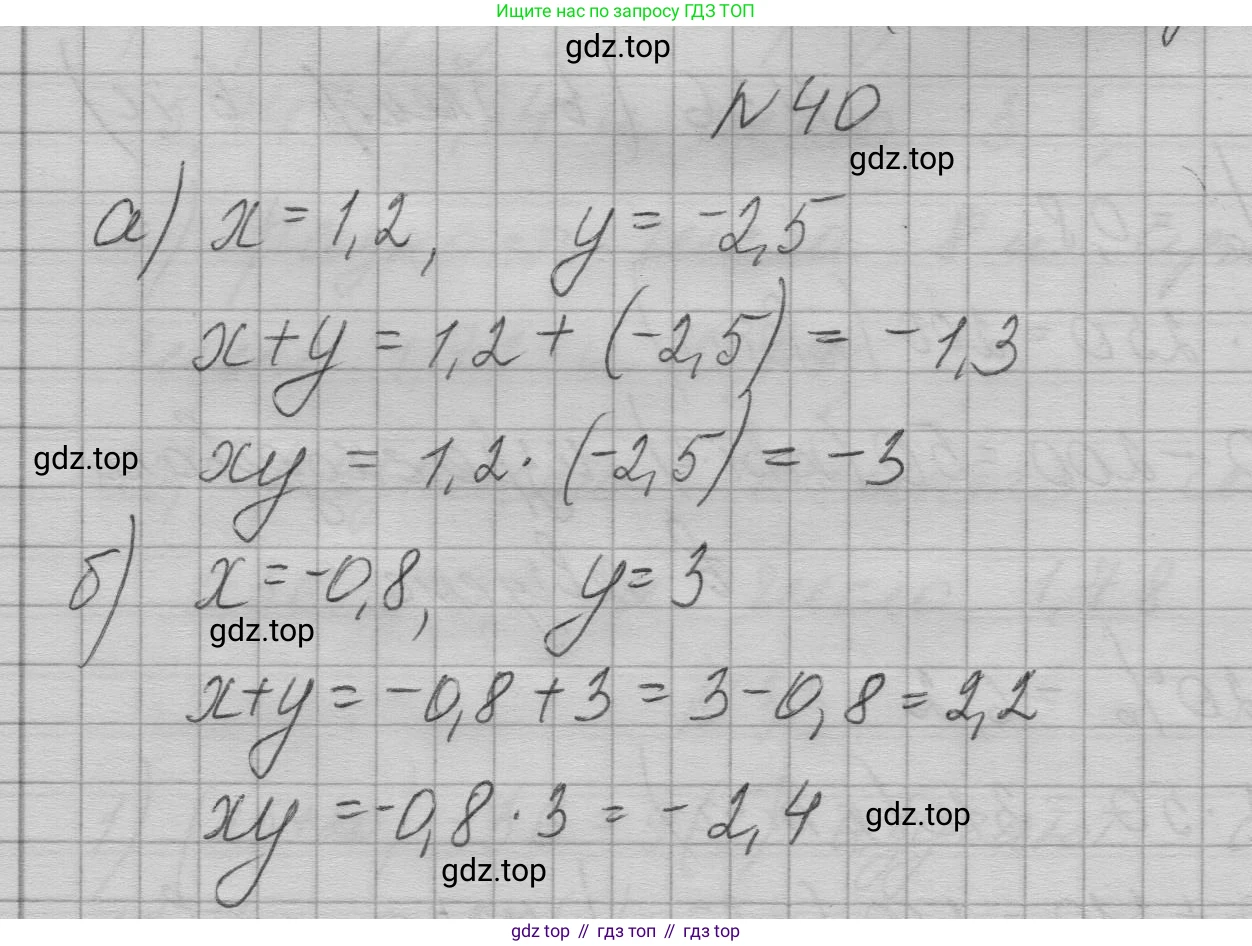 Ищите нас по запросу ГДЗ ТОП
gdz.top
N 40
gdz.top
а) x = 1,2, y = -2,5
x+y = 1,2 + (-2,5) = -1,3
gdz.top
xy = 1,2 · (-2,5) = -3
б) x = -0,8, y = 3
gdz.top
x+y = -0,8 + 3 = 3 - 0,8 = 2,2
xy = -0,8 · 3 = -2,4
gdz.top
gdz.top
gdz top // гдз топ // гдз top